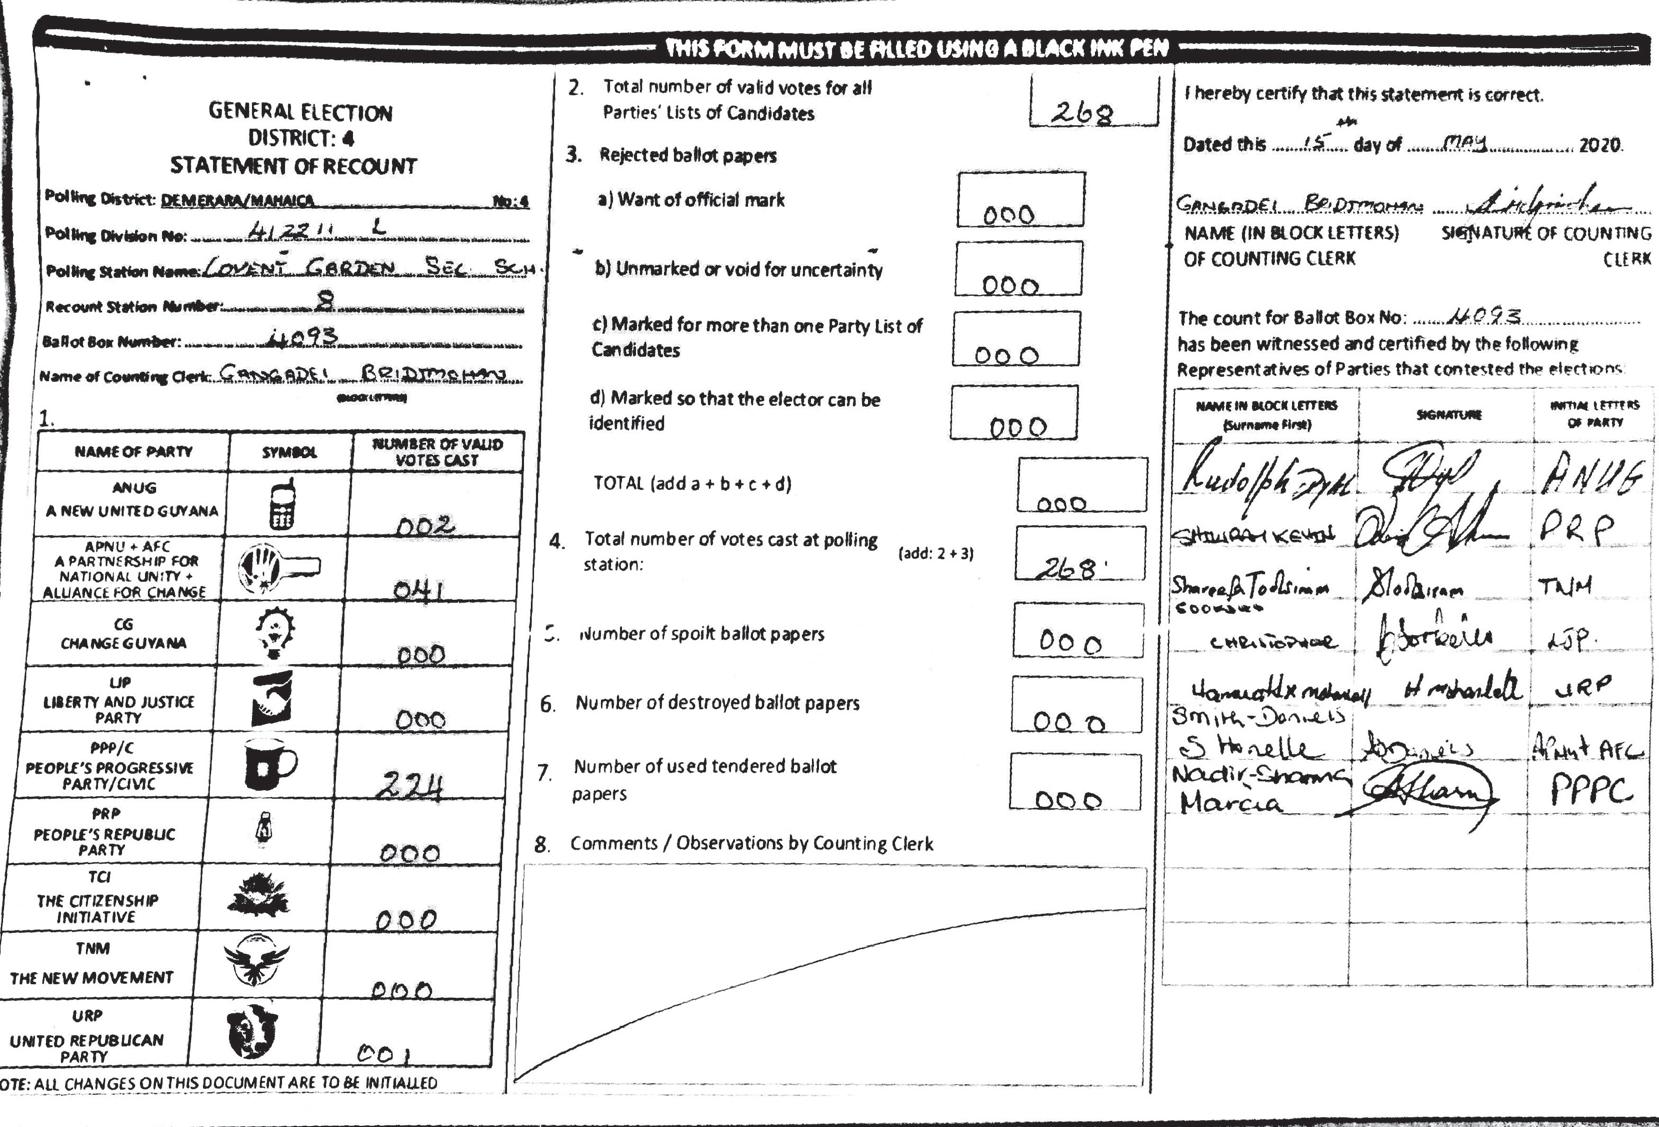 THIS FORM MUST BE FILLED USING A BLACK INK PEN
GENERAL ELECTION
DISTRICT: 4
STATEMENT OF RECOUNT
Polling District: DEMERARA/MAHAICA No:4
Polling Division No: 412211 L
Polling Station Name: COVENT GARDEN SEC. SCH.
Recount Station Number: 8
Ballot Box Number: 4093
Name of Counting Clerk: GANGADEI BRIDJMOHAN
(BLOCK LETTERS)
1.
NAME OF PARTY SYMBOL NUMBER OF VALID VOTES CAST
ANUG
A NEW UNITED GUYANA 002
APNU + AFC
A PARTNERSHIP FOR
NATIONAL UNITY +
ALLIANCE FOR CHANGE 041
CG
CHANGE GUYANA 000
LJP
LIBERTY AND JUSTICE
PARTY 000
PPP/C
PEOPLE'S PROGRESSIVE
PARTY/CIVIC 224
PRP
PEOPLE'S REPUBLIC
PARTY 000
TCI
THE CITIZENSHIP
INITIATIVE 000
TNM
THE NEW MOVEMENT 000
URP
UNITED REPUBLICAN
PARTY 001
OTE: ALL CHANGES ON THIS DOCUMENT ARE TO BE INITIALLED
2. Total number of valid votes for all
Parties' Lists of Candidates 268
3. Rejected ballot papers
a) Want of official mark 000
b) Unmarked or void for uncertainty 000
c) Marked for more than one Party List of
Candidates 000
d) Marked so that the elector can be
identified 000
TOTAL (add a + b + c + d) 000
4. Total number of votes cast at polling
station: (add: 2 + 3) 268
5. Number of spoilt ballot papers 000
6. Number of destroyed ballot papers 000
7. Number of used tendered ballot
papers 000
8. Comments / Observations by Counting Clerk
I hereby certify that this statement is correct.
Dated this 15th day of MAY 2020.
GANGADEI BRIDJMOHAN
NAME (IN BLOCK LETTERS) SIGNATURE OF COUNTING
OF COUNTING CLERK CLERK
The count for Ballot Box No: 4093
has been witnessed and certified by the following
Representatives of Parties that contested the elections:
NAME IN BLOCK LETTERS SIGNATURE INITIAL LETTERS
(Surname First) OF PARTY
Rudolph ANUG
SHIWRAM KEVIN PRP
Shareefa TNM
CHRISTOPHER LJP.
URP
Smith-Daniels
S Honelle Daniels APNU+ AFC
Nadir-Sharma
Marcia PPPC